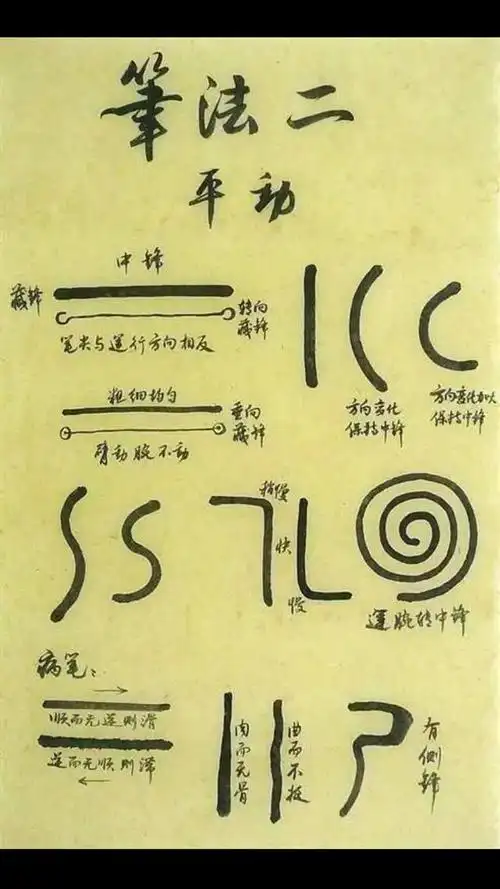 筆法二
平动
中锋
藏锋
转向
藏锋
笔尖与运行方向相反
粗细均匀
垂向
藏锋
臂动腕不动
方向变化
保持中锋
方向变化加大
保持中锋
稍慢
快
慢
运腕转中锋
病笔：
顺而无逆则滑
逆而无顺则滞
肉而无骨
曲而不挺
有侧锋